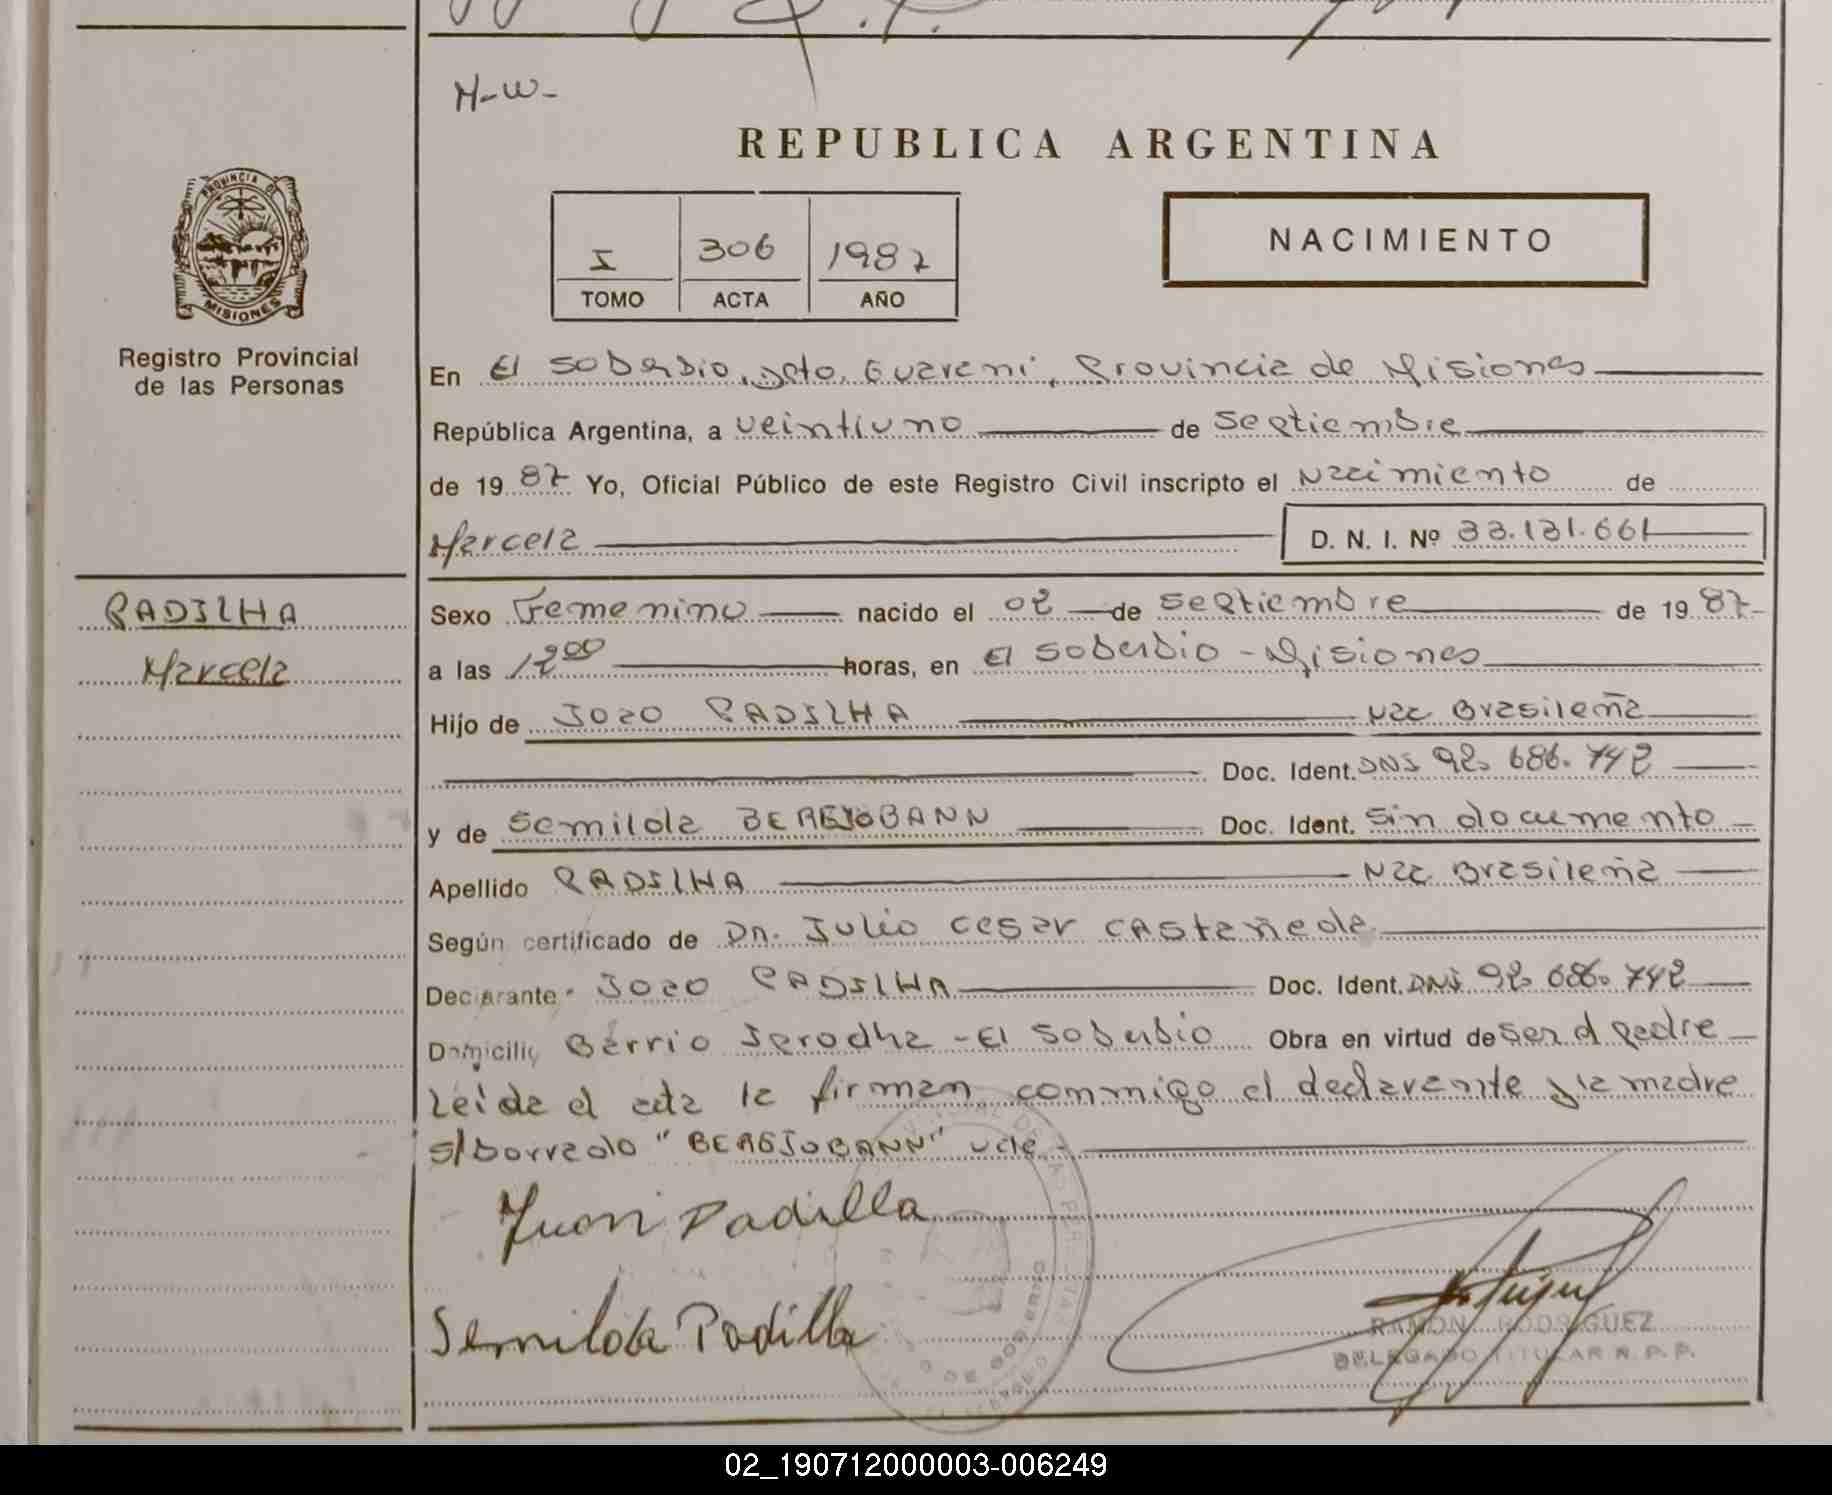 M-W-
REPUBLICA ARGENTINA
PROVINCIA DE
MISIONES
Registro Provincial
de las Personas
I 306 1987
TOMO ACTA AÑO
NACIMIENTO
En El Soberbio, Dto. Guarani, Provincia de Misiones
República Argentina, a veintiuno de Septiembre
de 1987 Yo, Oficial Público de este Registro Civil inscripto el Nacimiento de
Marcela D. N. I. Nº 33.131.661
PADILHA
Marcela
Sexo Femenino nacido el 02 de Septiembre de 1987
a las 12 00 horas, en El Soberbio - Misiones
Hijo de Joao PADILHA Nac Brasileña
Doc. Ident. DNI 92.686.742
y de Semilda BERGJOBANN Doc. Ident. Sin documento
Apellido PADILHA Nac Brasileña
Según certificado de Dn. Julio Cesar Castañeda
Declarante Joao PADILHA Doc. Ident. DNI 92.686.742
Domicilio Barrio Serodha - El Soberbio Obra en virtud de Ser el padre
Leida el acta la firman conmigo el declarante y la madre
s/borrado "BERGJOBANN" vale -
Juan Padilla
Semilda Padilla
RAMON RODRIGUEZ
DELEGADO TITULAR R.P.P.
02_190712000003-006249